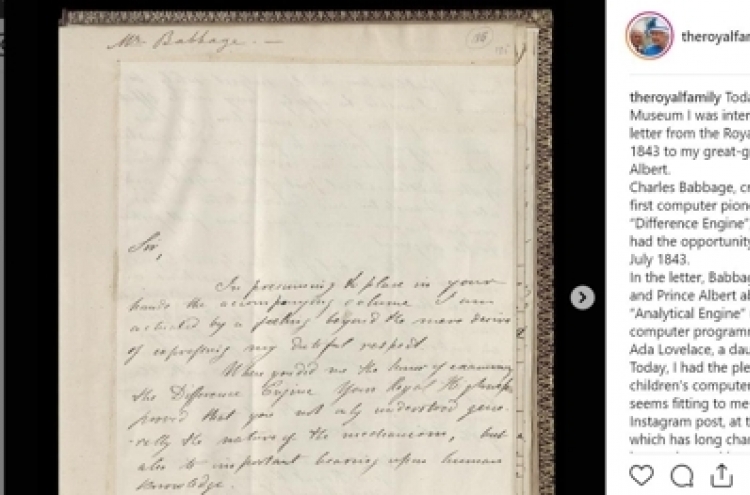 Mr Babbage. —
Sir,
In presuming to place in your
hands the accompanying volume I am
actuated by a feeling beyond the mere desire
of expressing my dutiful respect
When you did me the honor of examining
the Difference Engine Your Royal H
proved that you not only understood gene-
-rally the nature of the mechanism, but
also its important bearing upon human
knowledge.
theroyalfam
theroyalfamily Toda
Museum I was inter
letter from the Roya
1843 to my great-g
Albert.
Charles Babbage, cr
first computer pione
"Difference Engine"
had the opportunity
July 1843.
In the letter, Babbag
and Prince Albert ab
"Analytical Engine"
computer programm
Ada Lovelace, a dau
Today, I had the ple
children's computer
seems fitting to me
Instagram post, at t
which has long char